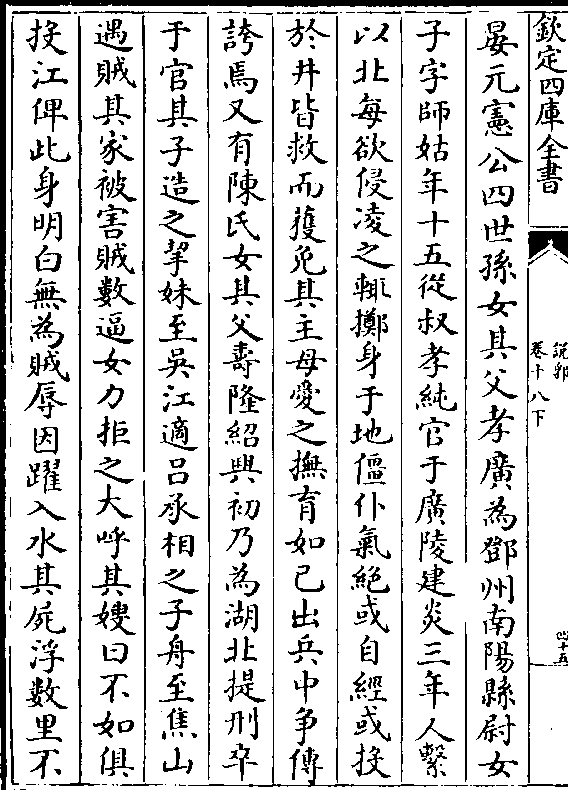 欽定四庫全書
說郛
卷十八下
四十五
晏元憲公四世孫女其父孝廣為鄧州南陽縣尉女
子字師姑年十五從叔孝純官于廣陵建炎三年人繫
以北每欲侵凌之輙擲身于地僵仆氣絶或自經或投
於井皆救而獲免其主母愛之撫育如己出兵中爭傳
誇焉又有陳氏女其父壽隆紹興初乃為湖北提刑卒
于官其子造之挈妹至吳江適呂承相之子舟至焦山
遇賊其家被害賊數逼女力拒之大呼其嫂曰不如俱
投江俾此身明白無為賊辱因躍入水其屍浮數里不